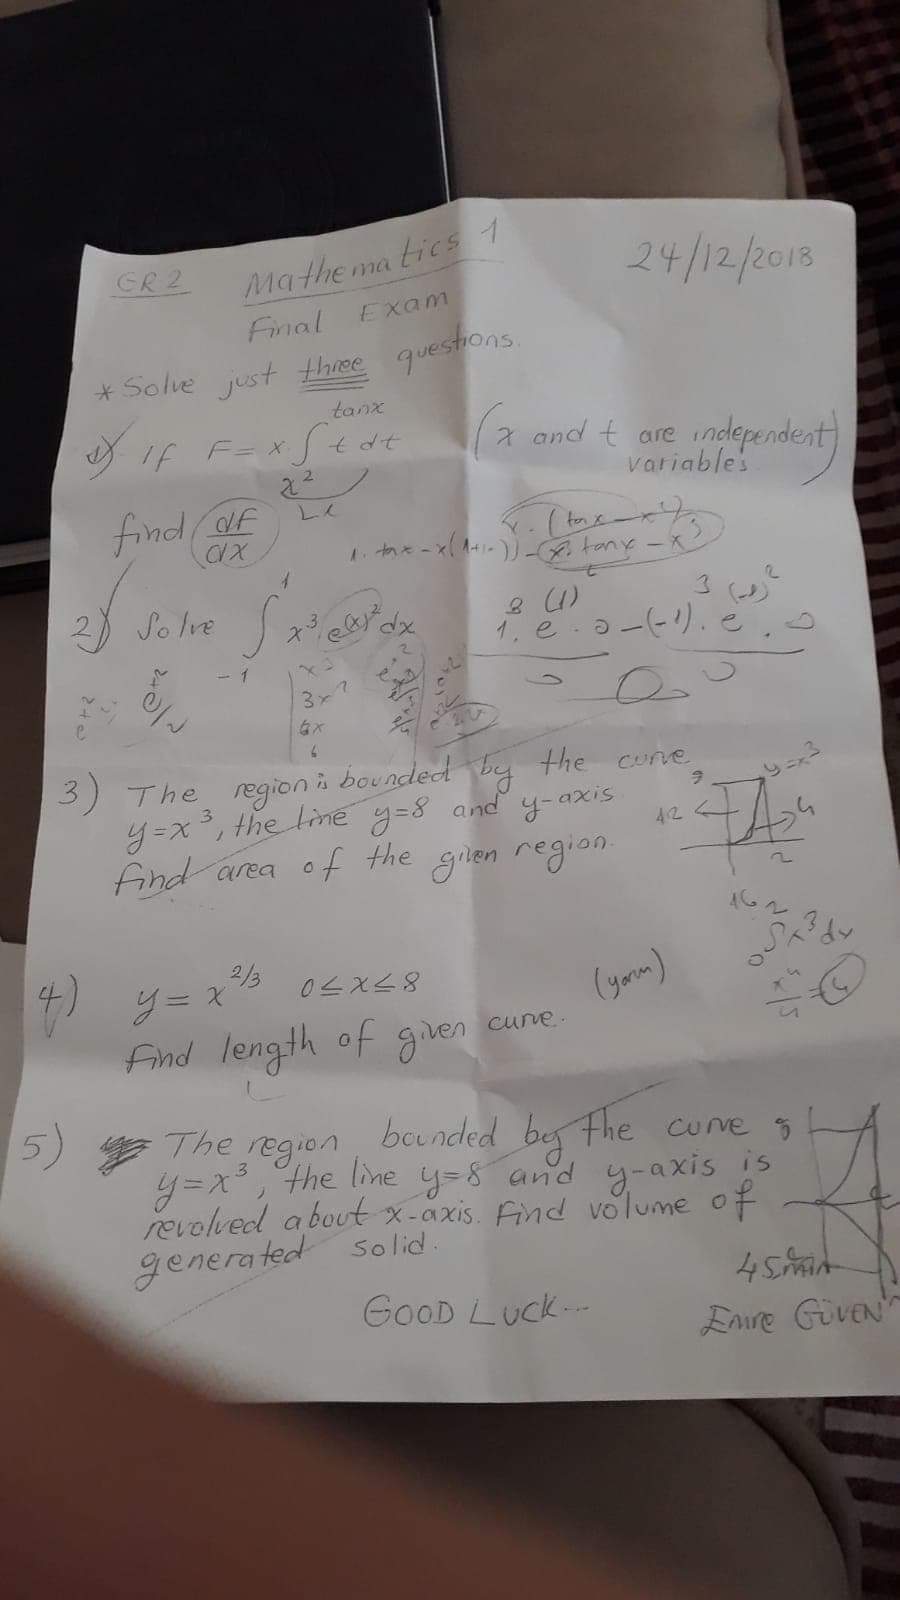 GR 2 Mathematics 1 24/12/2018
Final Exam
* Solve just three questions.
1) If F = x ∫ t dt (x and t are independent variables)
tanx
x²
find dF/dx
2) Solve ∫ x³ e^(x)² dx
1
-1
x³
3x²
6x
6
3) The region is bounded by the curve
y=x³, the line y=8 and y-axis
find area of the given region.
y=x³
12
4
2
16
2
∫x³dx
0
x⁴/4 = 4
4) y = x^2/3 0≤x≤8 (yarım)
Find length of given curve.
5) The region bounded by the curve
y=x³, the line y=8 and y-axis is
revolved about x-axis. Find volume of
generated solid.
45min
GOOD LUCK... Emre GÜVEN